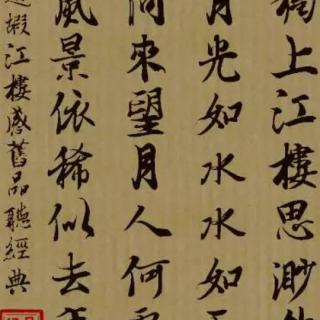 獨上江樓思渺
月光如水水如
同來望月人何
風景依稀似去年
嘏江樓感舊品聽經典